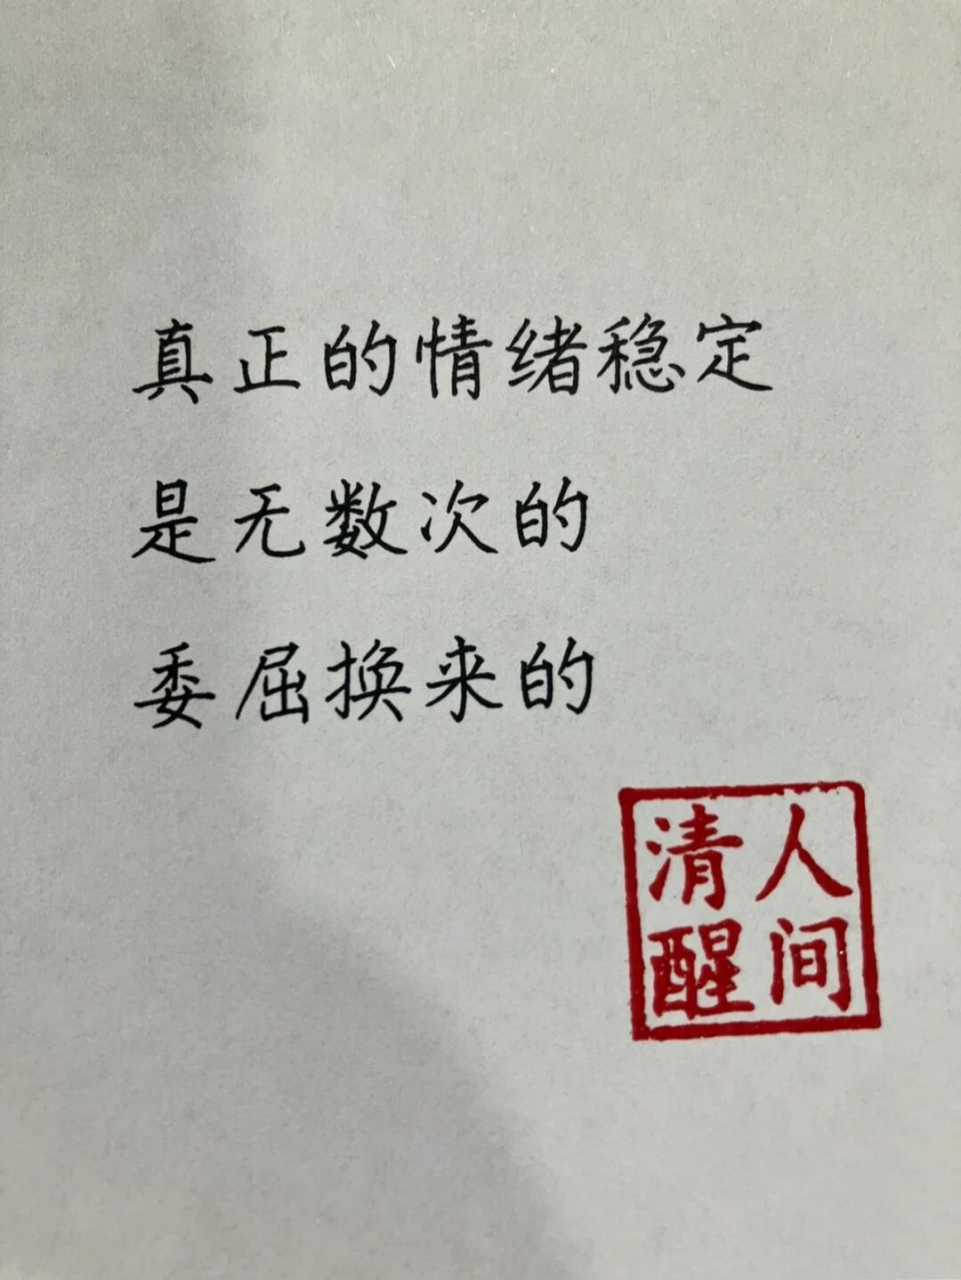 真正的情绪稳定
是无数次的
委屈换来的
人间
清醒